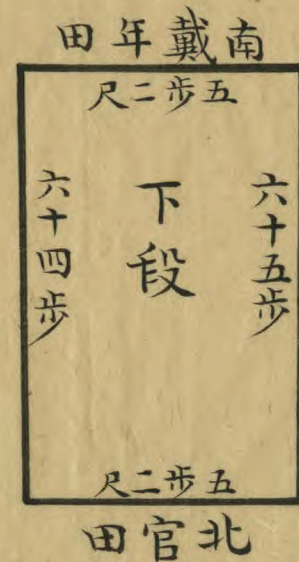 南戴年田
五步二尺
六十五步
下段
六十四步
五步二尺
北官田